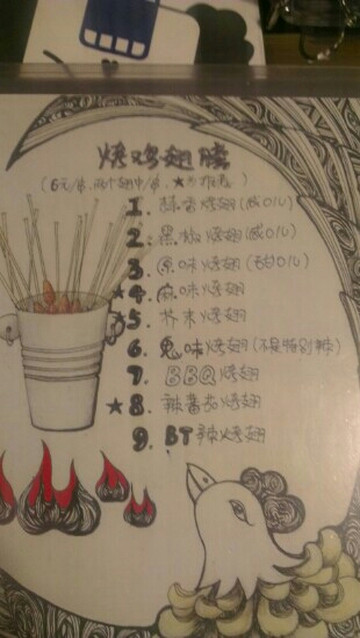 烤鸡翅膀
(6元/串,两个翅中/串,★为推荐)
1. 蒜香烤翅(咸口儿)
2. 黑椒烤翅(咸口儿)
3. 原味烤翅(甜口儿)
★4. 麻味烤翅
★5. 芥末烤翅
6. 鬼味烤翅(不是特别辣)
7. BBQ烤翅
★8. 辣番茄烤翅
9. BT辣烤翅